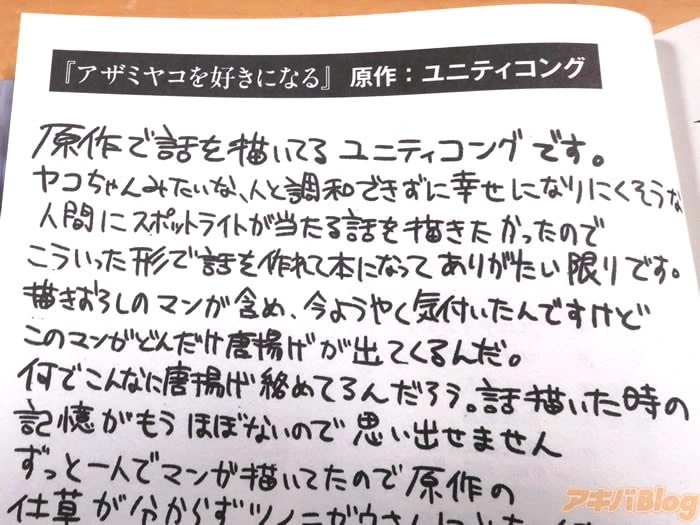 『アザミヤコを好きになる』 原作：ユニティコング
原作で話を描いてる ユニティコングです。
ヤコちゃんみたいな、人と調和できずに幸せになりにくそうな
人間にスポットライトが当たる話を描きたかったので
こういった形で話を作れて本になって ありがたい限りです。
描きおろしのマンガ含め、今ようやく気付いたんですけど
このマンガどんだけ唐揚げが出てくるんだ。
何でこんなに唐揚げ絡めてるんだろう。話描いた時の
記憶がもうほぼないので思い出せません
ずっと一人でマンガ描いてたので原作の
仕草が分からずツノニガウさんに
アキバBlog